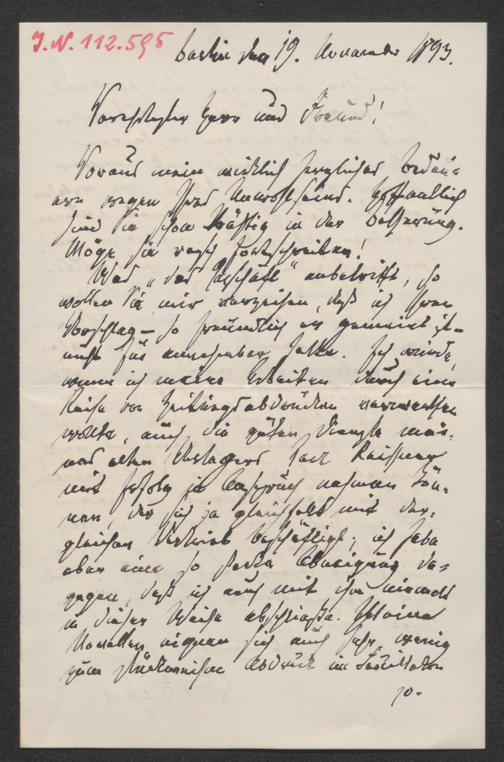 J.N. 112.595
Berlin den 19. November 1893.
Verehrtester Herr und Freund!
Voraus mein wirklich herzliches Bedau-
ern wegen Ihres Unwohlseins. Hoffentlich
sind Sie schon kräftig in der Besserung.
Möge sie rasch fortschreiten!
Was „das Geschäft" anbetrifft, so
wollen Sie mir verzeihen, daß ich Ihren
Vorschlag – so freundlich er gemeint ist –
nicht für annehmbar halte. Ich würde,
wenn ich meine Arbeiten durch eine
Reihe von Zeitungsabdrücken verwerthen
wollte, auch die guten Dienste mei-
nes alten Verlegers Carl Reißner
mit Erfolg in Anspruch nehmen kön-
nen, der sich ja gleichfalls mit der-
gleichen Vertrieb beschäftigt; ich habe
aber eine so starke Abneigung da-
gegen, daß ich auch mit ihm niemals
in dieser Weise abschließe. Meine
Novellen eignen sich auch sehr wenig
zum stückweisen Abdruck im Feuilleton